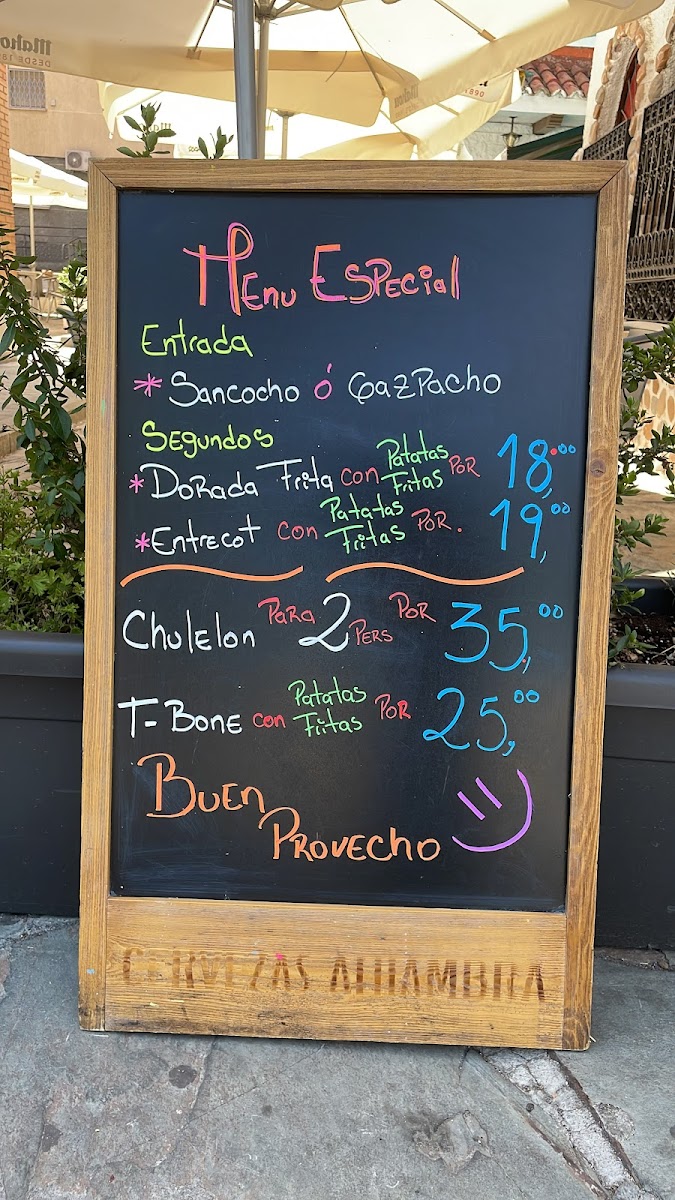 Mahou
DESDE 18
1890
Menu Especial
Entrada
* Sancocho ó Gazpacho
Segundos
* Dorada Frita con Patatas Fritas Por 18,00
* Entrecot con Patatas Fritas Por. 19,00
Chuleton Para 2 Pers Por 35,00
T-Bone con Patatas Fritas Por 25,00
Buen
Provecho
CERVEZAS ALHAMBRA